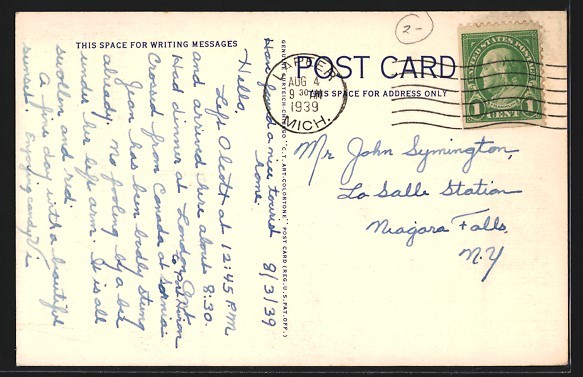 2-
THIS SPACE FOR WRITING MESSAGES
Have found a nice tourist
home. 8/3/39
Hello,
Left Olcott at 12:45 P.M
and arrived here about 8:30.
Had dinner at London, Ont
Crossed from Canada at Sarnia
to Port Huron
Jean has been badly stung
already. No fooling by a bee
under her left arm. It is all
swollen and red.
A fine day with a beautiful
sunset. Enjoying
GENUINE CURTEICH-CHICAGO "C.T. ART-COLORTONE" POST CARD (REG. U.S. PAT. OFF.)
POST CARD
THIS SPACE FOR ADDRESS ONLY
LAPEER
AUG 4
9 30 AM
1939
MICH.
UNITED STATES POSTAGE
1 1
CENT
Mr John Symington,
La Salle Station
Niagara Falls.
N.Y